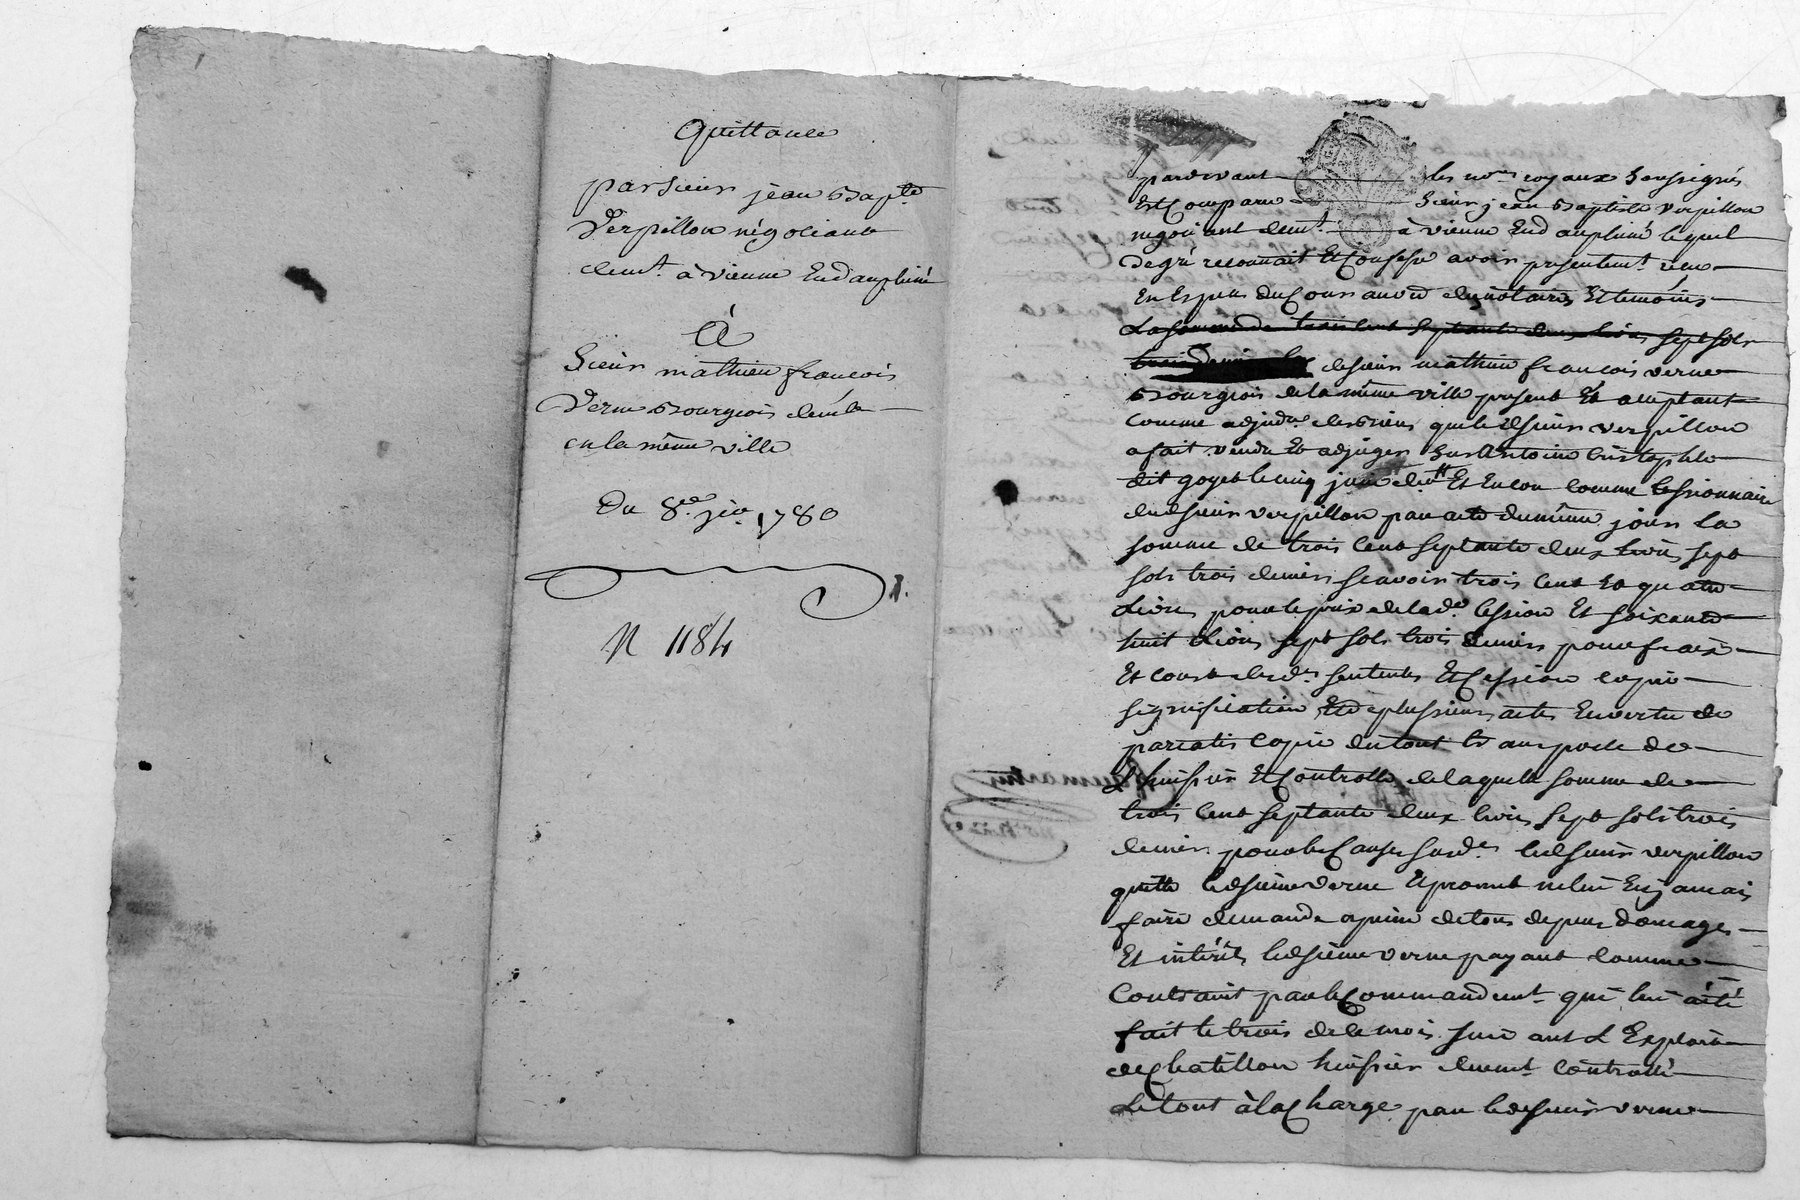 Quittance
par sieur jean Bapte
Verpillon négociant
demt. à vienne En dauphiné
À
Sieur mathieu francois
Verne Bourgeois demt.
en la même ville
Du 8e. 1780
N 1184
pardevant les nores royaux soussignés
Est Comparu sieur jean Baptiste verpillon
negociant demt. à vienne En dauphiné lequel
de gré reconnait Et Confesse avoir presentemt. reçu
En Espece du Cours au vû des notaires Et temoins
La somme de trois cent septante deux livres sept sols
trois deniers de sieur mathieu francois verne
Bourgeois de la même ville present Et acceptant
comme des Biens que led sieur verpillon
a fait vendre Et adjuger sur Antoine Cristophle
dit goyet le cinq Et Encore comme cessionnaire
dud sieur verpillon par acte du même jour La
somme de trois Cent septante deux livres sept
sols trois deniers scavoir trois Cent Et quatre
Livres pour le prix de lade. Cession Et soixante
huit Livres sept sols trois deniers pour fraix
Et cours desds. sentences Et Cession copie
signification Et de plusieurs actes En vertu de
pareatis Copie du tout transport de
L'huissier Et Controlle de laquelle somme de
trois Cent septante deux livres sept sols trois
deniers pour les Causes susdes. led sieur verpillon
quitte led sieur verne Et promet ne lui En jamais
faire demande a peine de tous depens domages
Et intérêts led sieur verne payant comme
Contraint par le Commandemt. qui lui a été
fait le trois de ce mois suivant L'Exploit
de Chatillon huissier duemt. Controllé
Le tout à la Charge par led sieur verne